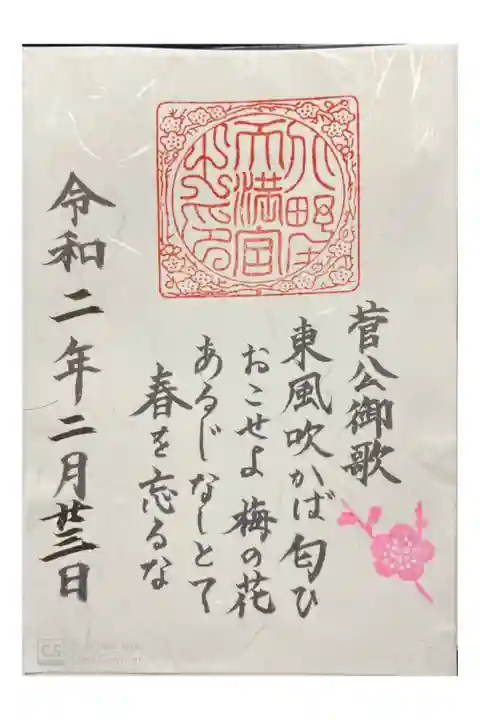 菅公御歌
東風吹かば匂ひ
おこせよ 梅の花
あるじなしとて
春を忘るな
令和二年二月廿三日
天満宮
CS